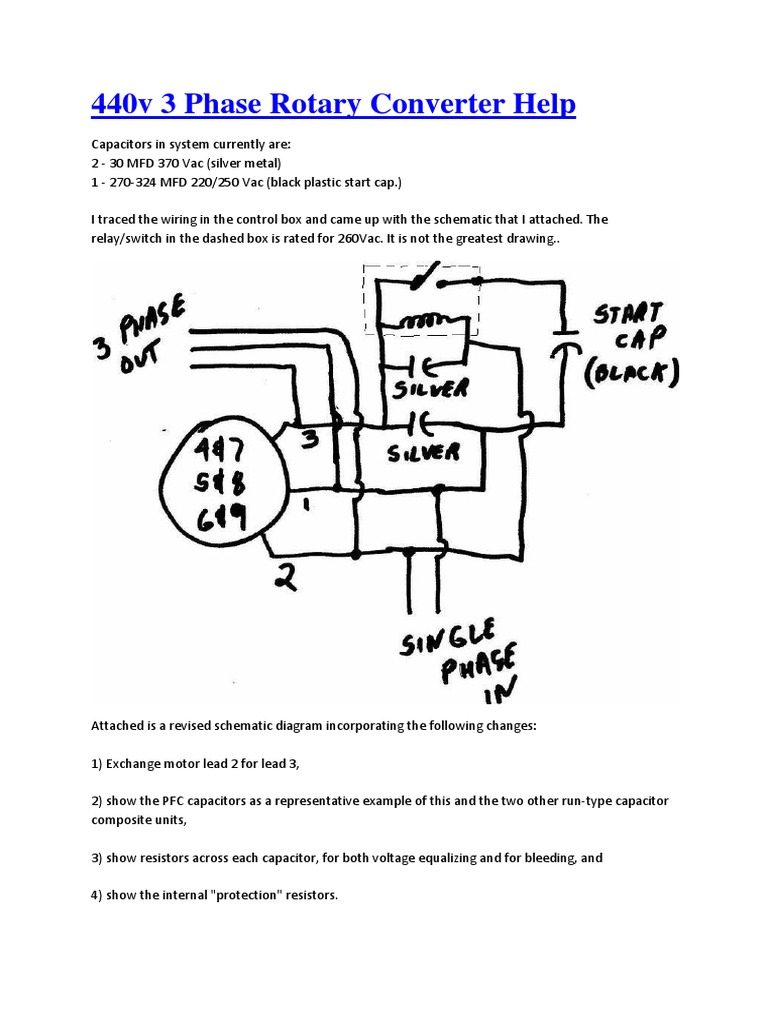 440v 3 Phase Rotary Converter Help
Capacitors in system currently are:
2 - 30 MFD 370 Vac (silver metal)
1 - 270-324 MFD 220/250 Vac (black plastic start cap.)
I traced the wiring in the control box and came up with the schematic that I attached. The
relay/switch in the dashed box is rated for 260Vac. It is not the greatest drawing..
3 PHASE
OUT
START
CAP
(BLACK)
SILVER
SILVER
4&7
5&8
6&9
3
1
2
SINGLE
PHASE
IN
Attached is a revised schematic diagram incorporating the following changes:
1) Exchange motor lead 2 for lead 3,
2) show the PFC capacitors as a representative example of this and the two other run-type capacitor
composite units,
3) show resistors across each capacitor, for both voltage equalizing and for bleeding, and
4) show the internal "protection" resistors.